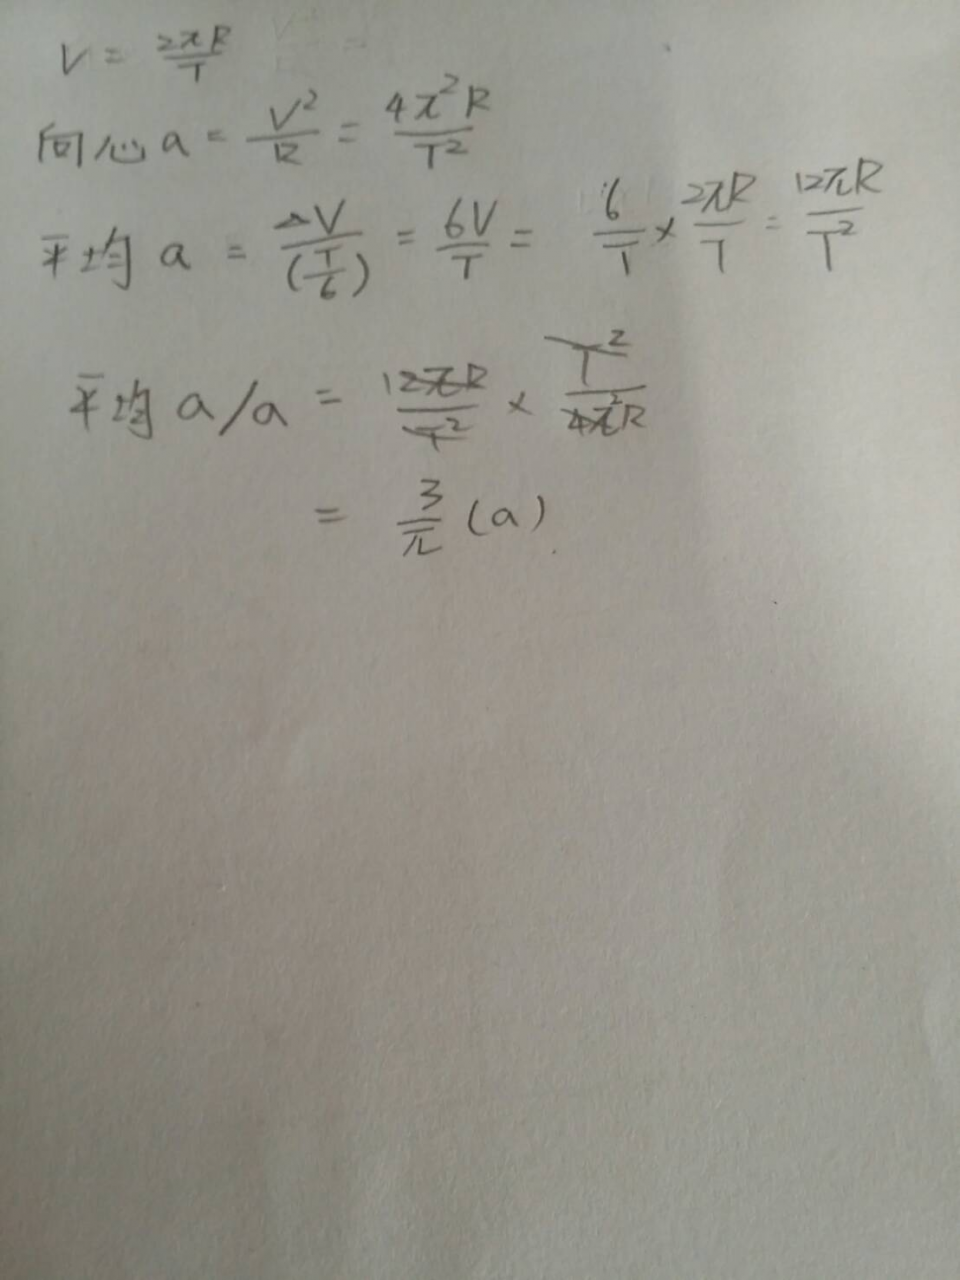 V = 2πR/T
向心a = V²/R = 4π²R/T²
平均a = ΔV/(T/6) = 6V/T = 6/T × 2πR/T = 12πR/T²
平均a/a = 12πR/T² × T²/4π²R
= 3/π (a)